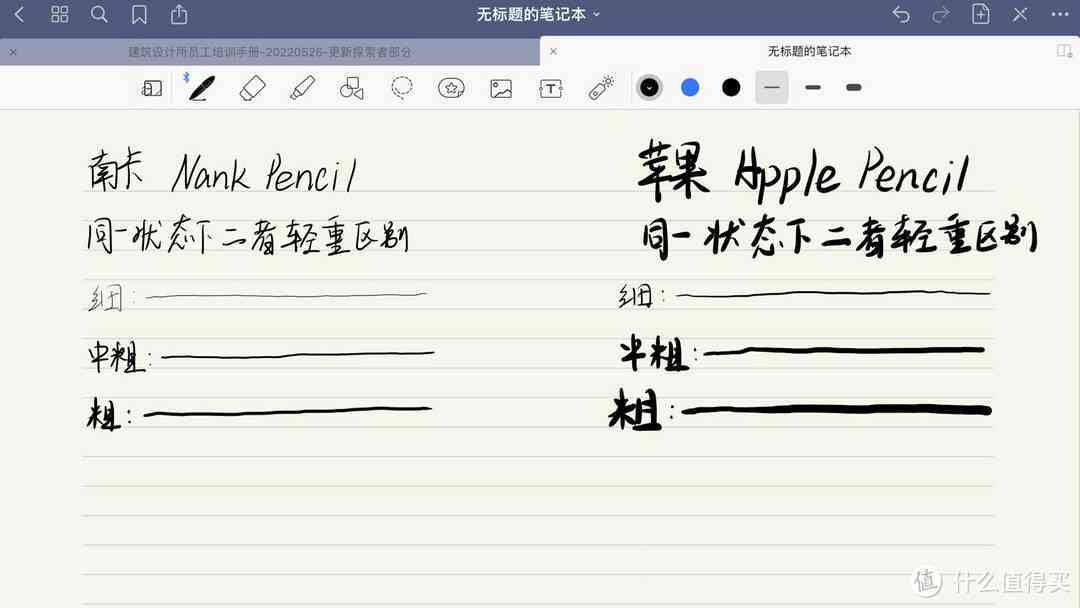 无标题的笔记本
建筑设计用员工培训手册-20220526-更新探索者部分
无标题的笔记本
南卡 Nank Pencil
同一状态下二者轻重区别
细:
中粗:
粗:
苹果 Apple Pencil
同一状态下二者轻重区别
细:
半粗:
粗:
值 什么值得买